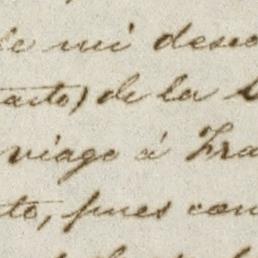 de mi deseo
arto) de la
viage á Fra
to, pues con